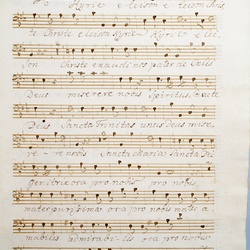 Kyrie eleison eleison Chris
te Christe eleison Kyrie Kyrie elei
son Christe exaudi nos pater de Coelis
Deus miserere nobis Spiritus Sancte
Deus Sancta Trinitas unus Deus mise
rere nobis Sancta Maria Sancta Dei
genitrix ora pro nobis pro nobis
mater purissima ora pro nobis mater a
mabilis admirabilis ora pro nobis